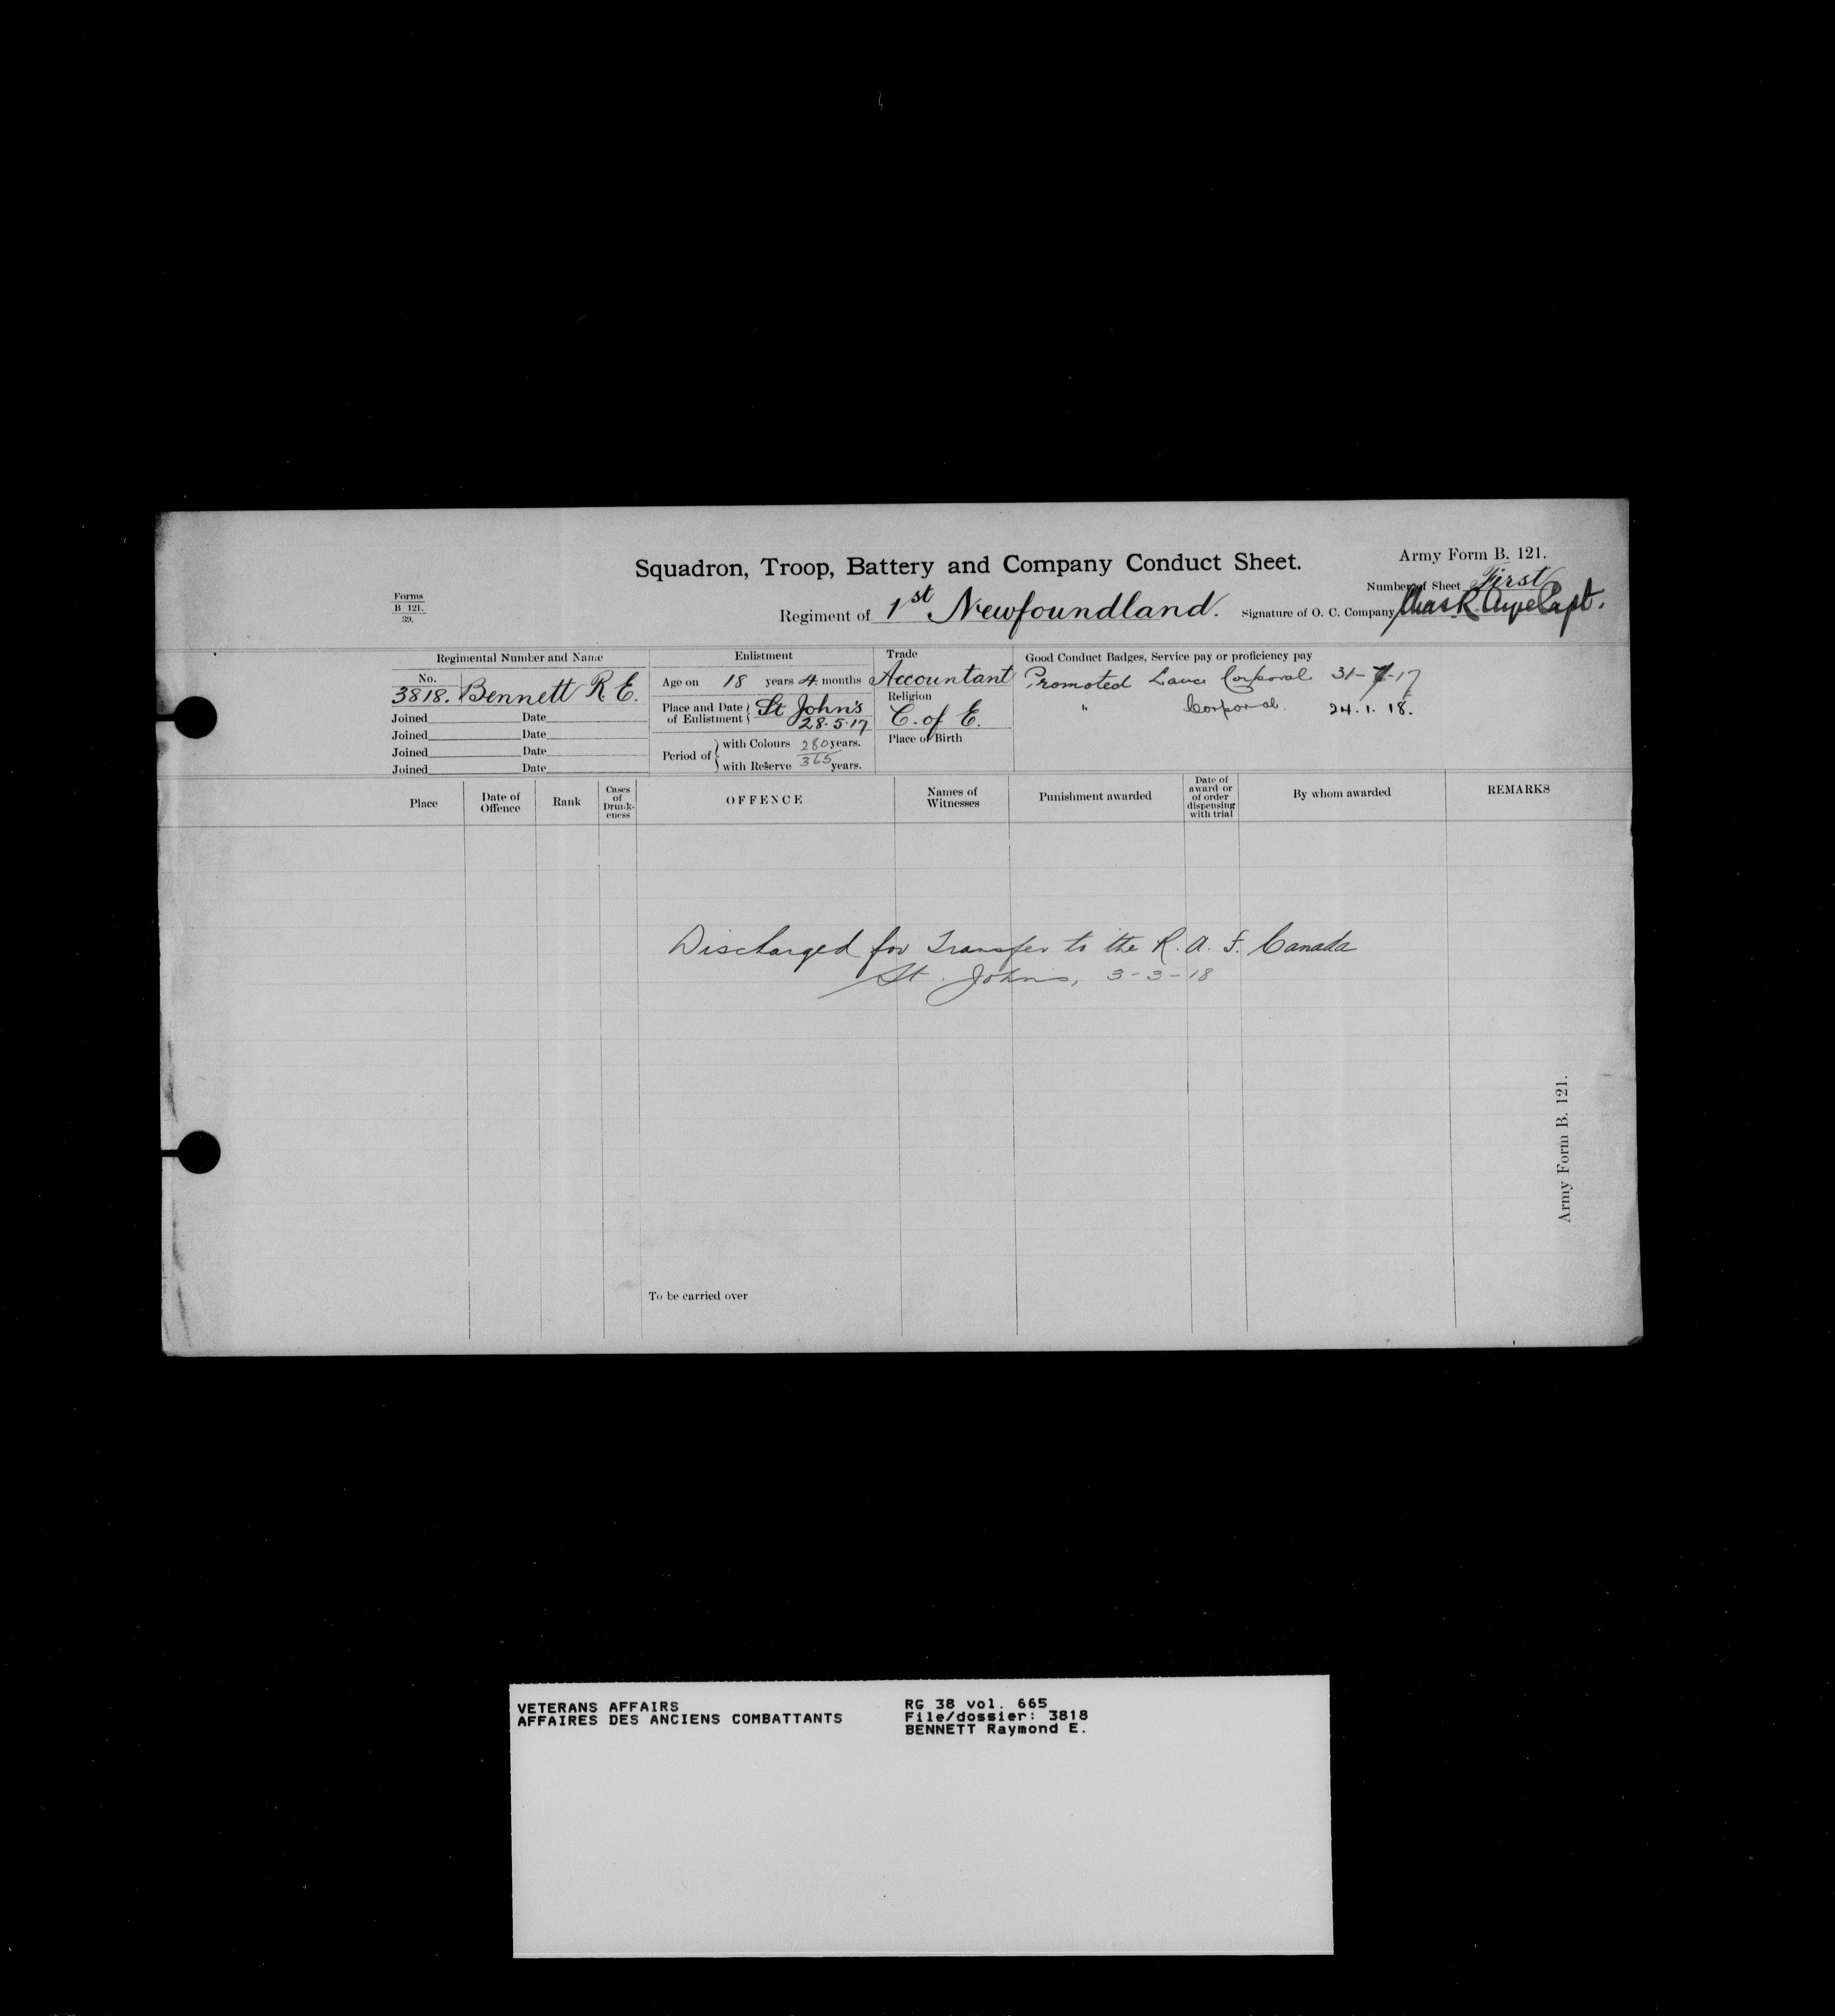 Squadron, Troop, Battery and Company Conduct Sheet.
Army Form B. 121.
Forms
B 121.
39.
Number of Sheet First
Regiment of 1st Newfoundland.
Signature of O. C. Company Chas R. Ayre Capt.
Regimental Number and Name
No.
3818. Bennett R. E.
Joined Date
Joined Date
Joined Date
Joined Date
Enlistment
Age on 18 years 4 months
Place and Date of Enlistment St John's
28.5.17
Period of with Colours 280 years.
with Reserve 365 years.
Trade
Accountant
Religion
C. of E.
Place of Birth
Good Conduct Badges, Service pay or proficiency pay
Promoted Lance Corporal 31-7-17
" Corporal. 24.1.18.
Place
Date of Offence
Rank
Cases of Drunk-eness
OFFENCE
Names of Witnesses
Punishment awarded
Date of award or of order dispensing with trial
By whom awarded
REMARKS
Discharged for Transfer to the R. A. F. Canada
St. Johns, 3-3-18
To be carried over
Army Form B. 121.
VETERANS AFFAIRS
AFFAIRES DES ANCIENS COMBATTANTS
RG 38 vol. 665
File/dossier: 3818
BENNETT Raymond E.